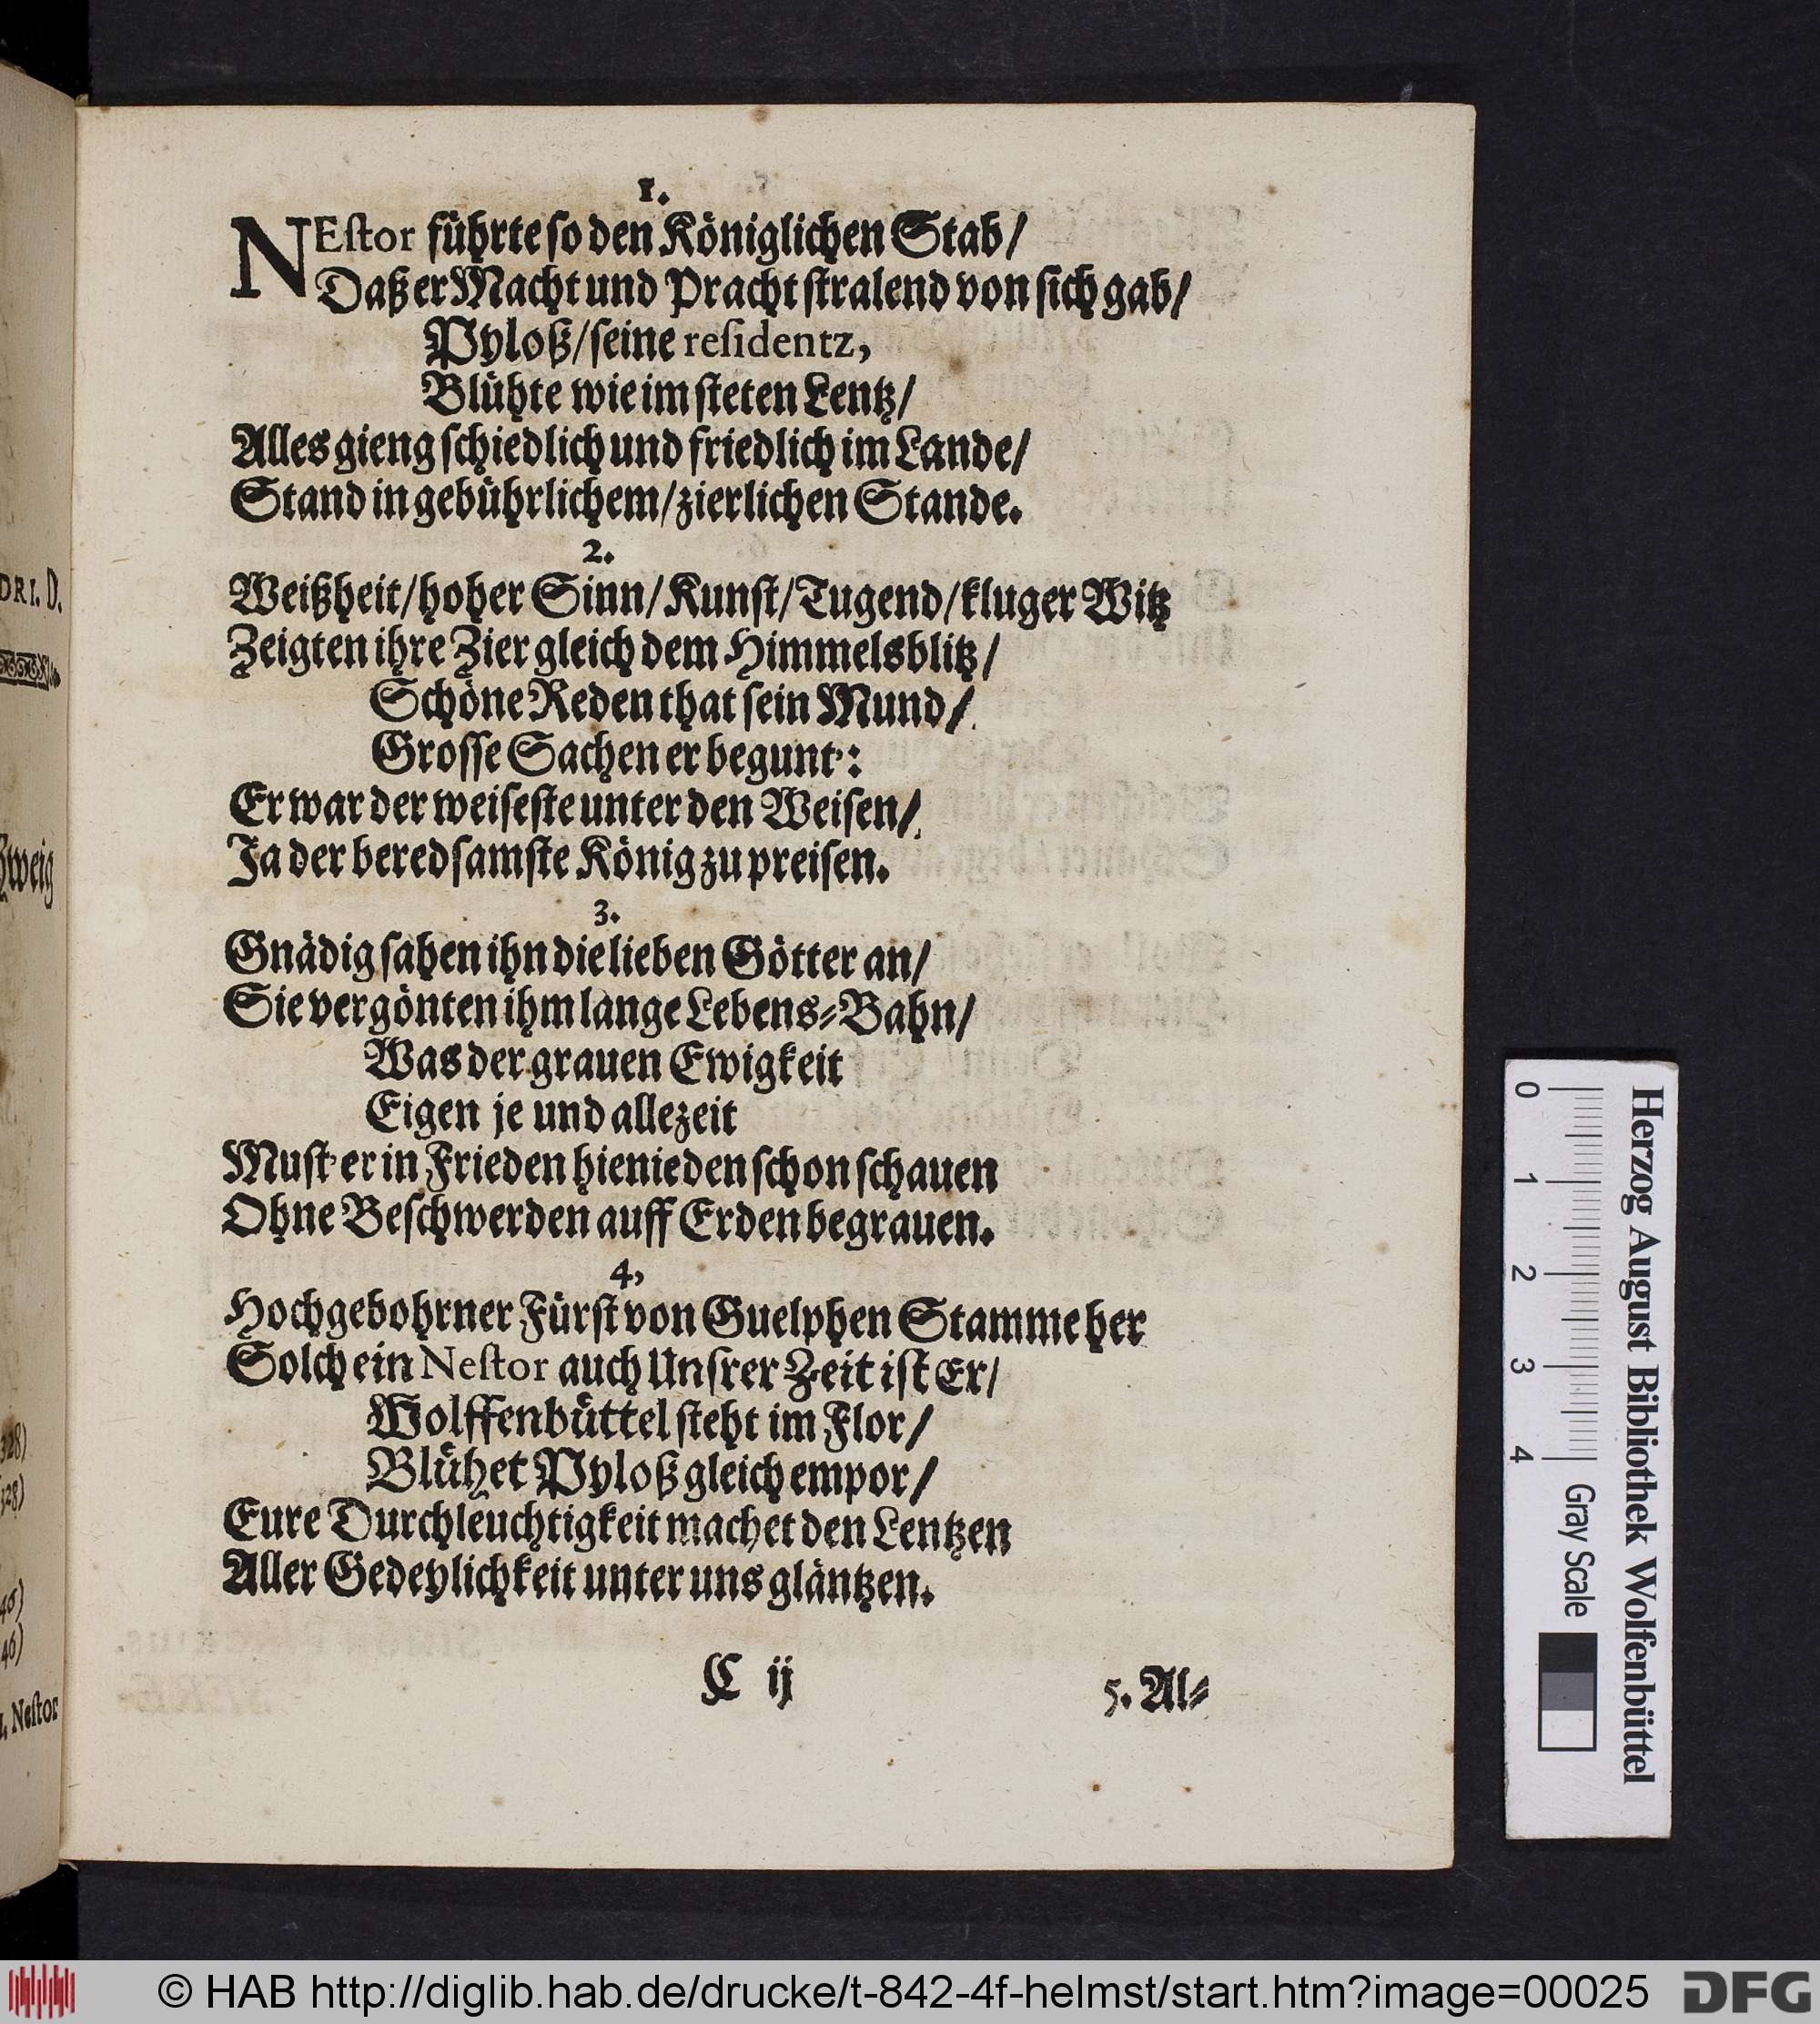 1.
NEſtor führte ſo den Königlichen Stab/
Daß er Macht und Pracht ſtralend von ſich gab/
Pyloß/ ſeine reſidentz,
Blühte wie im ſteten Lentz/
Alles gieng ſchiedlich und friedlich im Lande/
Stand in gebührlichem/ zierlichen Stande.
2.
Weißheit/ hoher Sinn/ Kunſt/ Tugend/ kluger Witz
Zeigten ihre Zier gleich dem Himmelsblitz/
Schöne Reden that ſein Mund/
Groſſe Sachen er begunt’:
Er war der weiſeſte unter den Weiſen/
Ja der beredſamſte König zu preiſen.
3.
Gnädig ſahen ihn die lieben Götter an/
Sie vergönten ihm lange Lebens-Bahn/
Was der grauen Ewigkeit
Eigen je und allezeit
Muſt’ er in Frieden hienieden ſchon ſchauen
Ohne Beſchwerden auff Erden begrauen.
4,
Hochgebohrner Fürſt von Guelphen Stamme her
Solch ein Neſtor auch Unſrer Zeit iſt Er/
Wolffenbüttel ſteht im Flor/
Blühet Pyloß gleich empor/
Eure Durchleuchtigkeit machet den Lentzen
Aller Gedeylichkeit unter uns gläntzen.
C ij
5. Al-
DRI. D.
Zweig
328)
328)
46)
46)
Neſtor
0 1 2 3 4 Gray Scale
Herzog August Bibliothek Wolfenbüttel
© HAB http://diglib.hab.de/drucke/t-842-4f-helmst/start.htm?image=00025
DFG